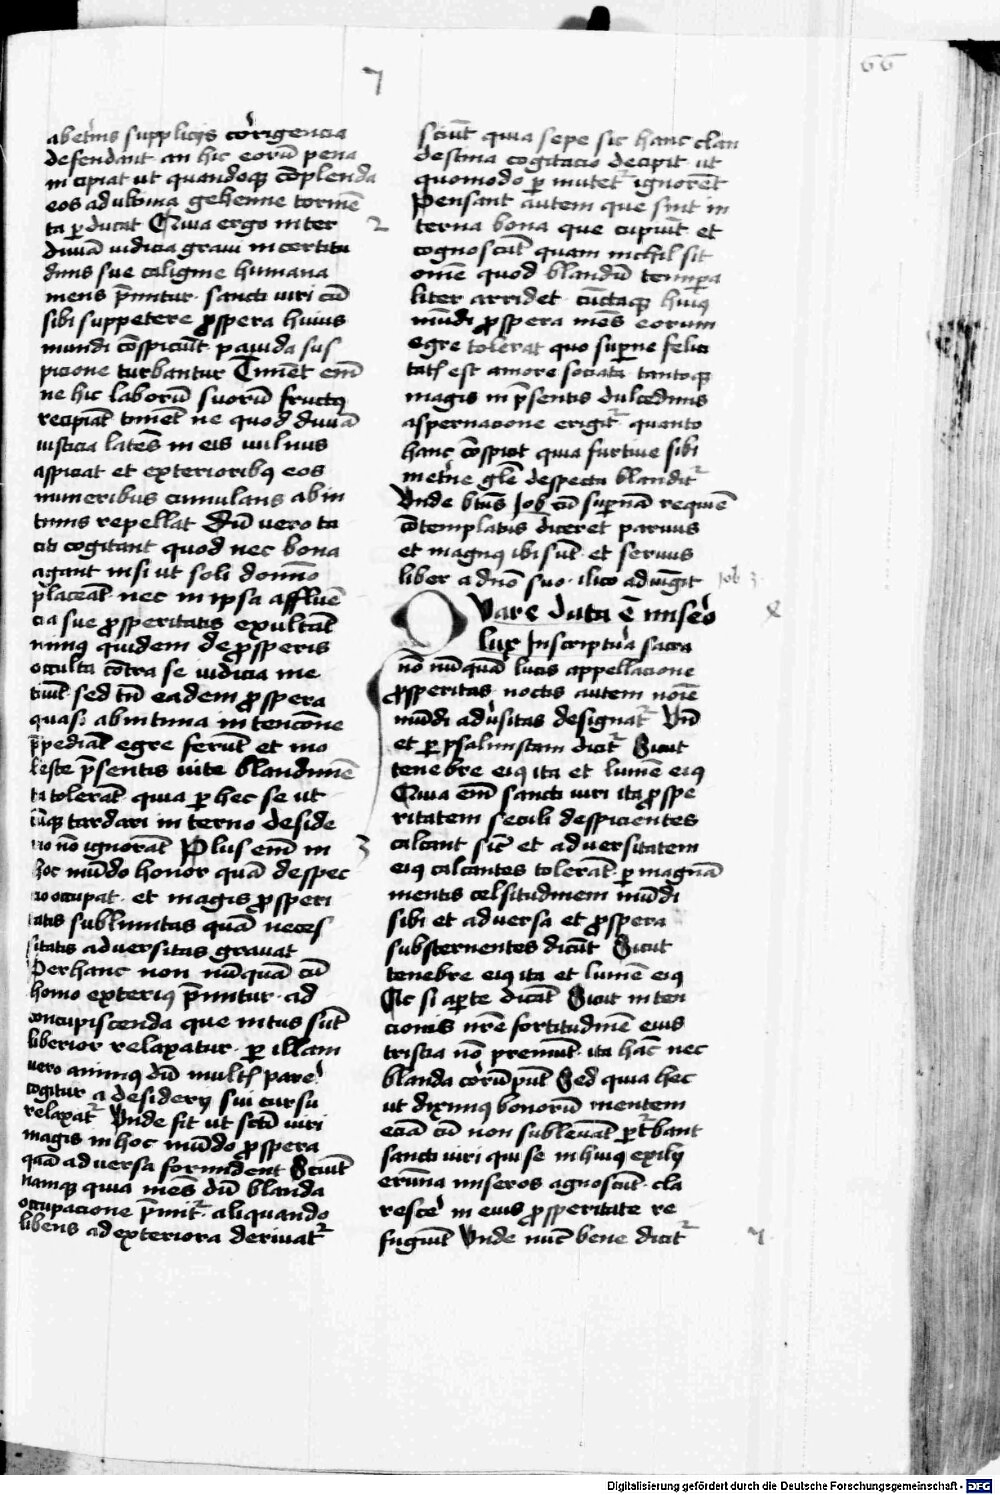 7
66
abet̄nis supplicijs cōrigencia
defendant an hic eorū pena
incipiat ut quandoq̨ cōplenda
eos ad ultima gehenne tormē
ta ꝑducat Quia ergo inter 2
diuīa iudicia graui incertitu
dinis sue caligine humana
mens p̄mitur · sancti uiri cū
sibi suppetere ꝓspera huius
mundi cōspiciūt pauida sus
picione turbantur Timēt em̄
ne hic laborū suorū fructꝰ
recipiāt timēt ne quod diuīa
iusticia latēs in eis uulnus
aspiciat et exterioribꝰ eos
muneribus cumulans ab in
timis repellat Dū vero ta
cite cogitant quod nec bona
agant nisi ut soli domīo
placeāt · nec in ipsa affluē
cia sue ꝓsperitatis exultāt
minꝰ quidem de ꝓsperis
occulta cōtra se iudicia me
tuūt · sed tn̄ eadem ꝓspera
quasi ab intima intencōne
p̄pediāt egre ferūt et mo
leste p̄sentis uite blandimē
ta tolerāt quia ꝑ hec se ut
cūq̨ tardari interno deside
rio nō ignorāt Plus em̄ in 3
hoc mūdo honor quā despec
tio occupat · et magis ꝓsperi
tatis sublimitas quā neces
sitatis aduersitas grauat
Per hanc non nūquā cū
homo exteriꝰ p̄mitur · ad
concupiscenda que intus sūt
liberior relaxatur · ꝑ illam
uero animꝰ dū multis pare᷑
cogitur a desiderij sui cursu
relaxat᷑ Vnde fit ut scti uiri
magis in hoc mūdo ꝓspera
quā aduersa formident Sciūt
namq̨ quia mēs dū blanda
occupacione p̄mit᷑ · aliquando
libens ad exteriora deriuat᷑
sciūt quia sepe sic hanc clan
destina cogitacio decipit ut
quomodo ꝑmutet᷑ ignorēt
Pensant autem que sint in
terna bona que cupiūt et
cognoscūt quam nichil sit
omē quod blandū tempa
liter arridet · cūctaq̨ huiꝰ
mūdi ꝓspera mēs eorum
egre tolerat quo suꝑne felici
tatis est amore sociata · tantoq̨
magis in p̄sentis dulcedinis
aspernacione erigit᷑ quanto
hanc cōspicit quia furtiue sibi
met̄ne gl̄e despecta blandit᷑
Vnde bt̄us Job cū suꝑnā requiē
cōtemplatus diceret paruus
et magnꝰ ibi sūt · et seruus
liber a dn̄o suo · ilico adiūgit Job 3
Quare data ē misero
lux In scriptura sacra
nō nūquā lucis appellacione
ꝓsperitas noctis autem noīe
mūdi adūsitas designat᷑ Vn̄
et ꝑ psalmistam dicit᷑ Sicut
tenebre eiꝰ ita et lumē eiꝰ
Quia em̄ sancti uiri ita ꝓspe
ritatem seculi despicientes
calcant sic̄ et aduersitatem
eiꝰ calcantes tolerāt · ꝑ magnā
mentis celsitudinem mūdi
sibi et aduersa et ꝓspera
substernentes dicūt Sicut
tenebre eiꝰ ita et lumē eiꝰ
Ac si aꝑte dicāt Sicut inten
cionis nr̄e fortitudinē eius
tristia nō premūt · ita hāc nec
blanda corrūpūt Sed quia hec
ut diximꝰ bonorū mentem
eciā cū non subleuāt ꝑt᷑bant
sancti uiri qui se in huiꝰ exilij
erūna miseros agnoscūt · cla
resce᷑ in eius ꝓsperitate re
fugiūt Vnde nūc bene dicit᷑ 7